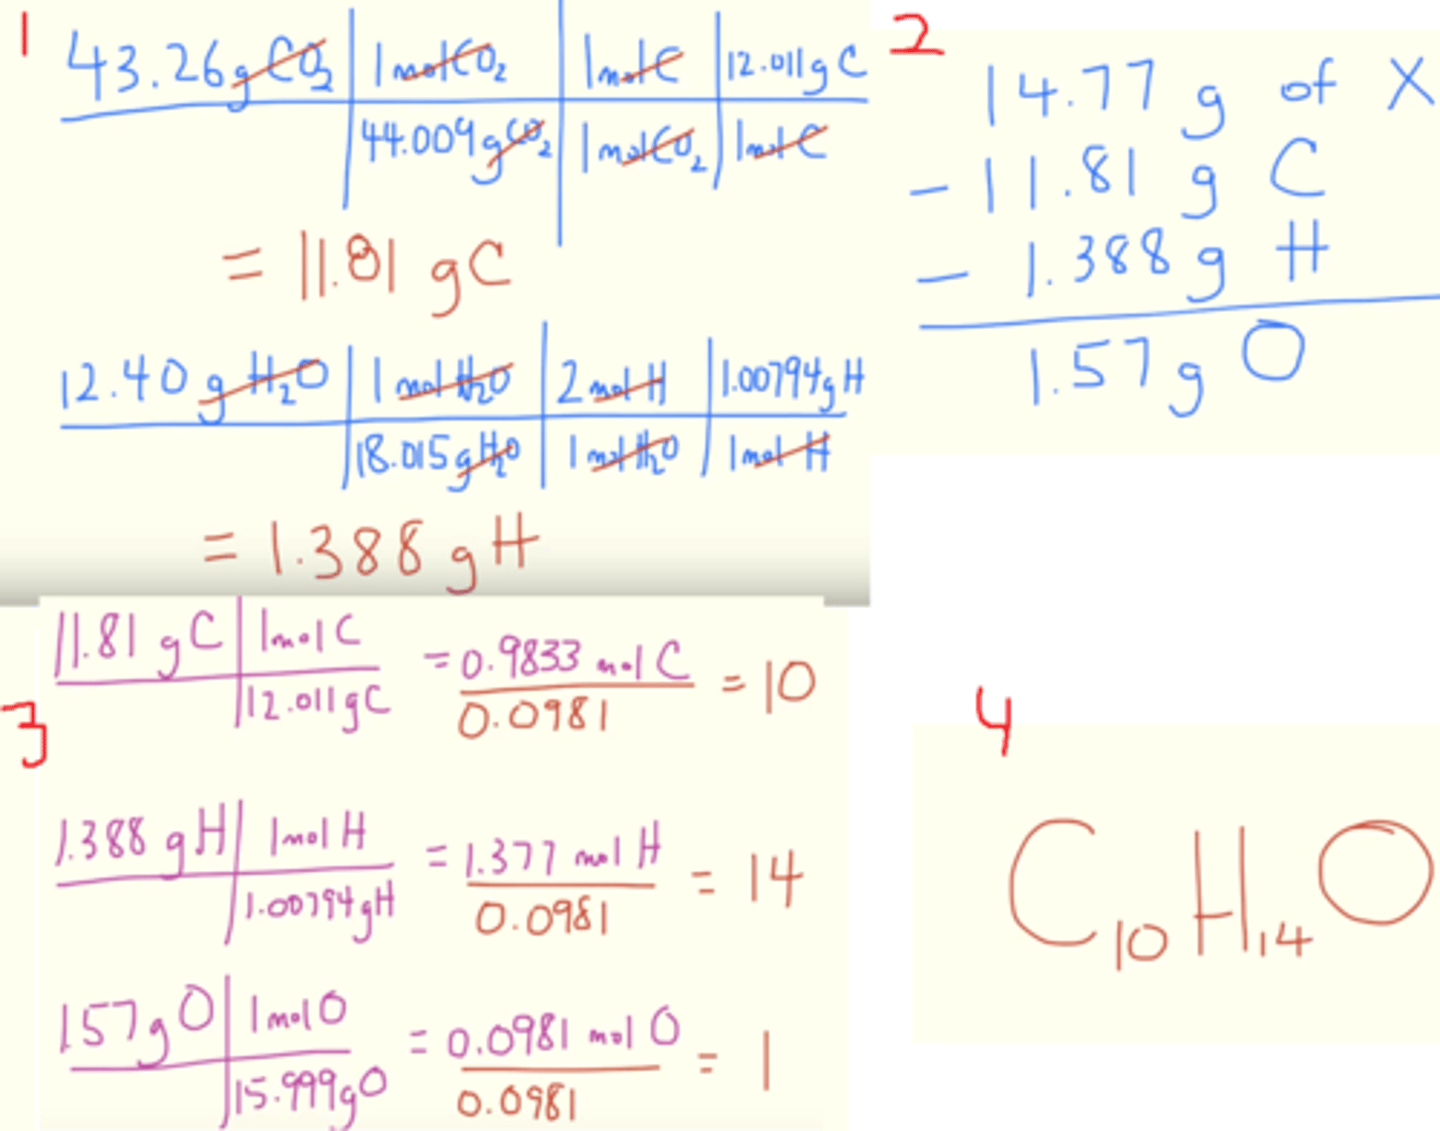 1
43.26g CO₂ | 1molCO₂ | 1molC | 12.011g C
44.009gCO₂ | 1molCO₂ | 1molC
= 11.81 gC
12.40g H₂O | 1molH₂O | 2molH | 1.00794gH
18.015gH₂O | 1molH₂O | 1molH
= 1.388 gH
2
14.77 g of X
- 11.81 g C
- 1.388 g H
1.57g O
3
11.81 gC | 1molC = 0.9833 molC = 10
12.011gC 0.0981
1.388 gH | 1molH = 1.377 molH = 14
1.00794gH 0.0981
1.57gO | 1molO = 0.0981 molO = 1
15.999gO 0.0981
4
C₁₀H₁₄O